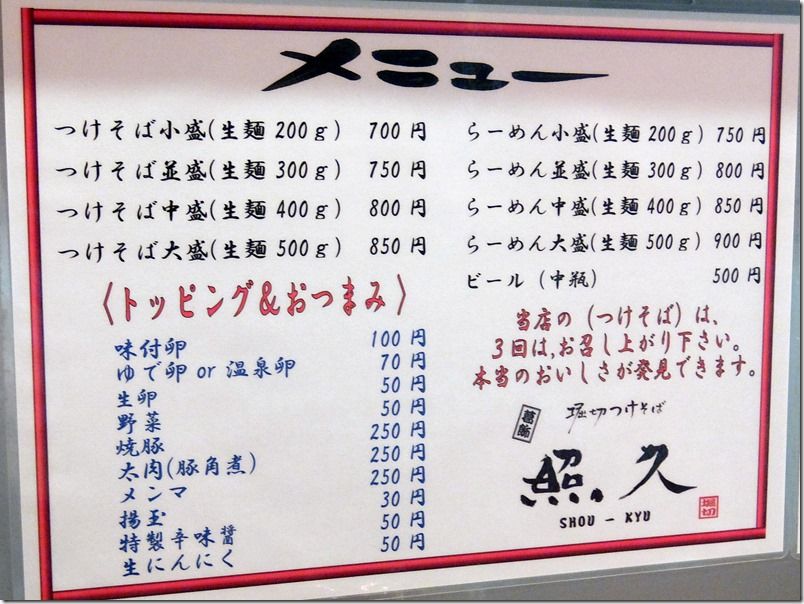 メニュー
つけそば小盛(生麺 200g) 700 円
つけそば並盛(生麺 300g) 750 円
つけそば中盛(生麺 400g) 800 円
つけそば大盛(生麺 500g) 850 円
〈トッピング&おつまみ〉
味付卵 100 円
ゆで卵 or 温泉卵 70 円
生卵 50 円
野菜 50 円
焼豚 250 円
太肉(豚角煮) 250 円
メンマ 250 円
揚玉 30 円
特製辛味醤 50 円
生にんにく 50 円
らーめん小盛(生麺 200g) 750 円
らーめん並盛(生麺 300g) 800 円
らーめん中盛(生麺 400g) 850 円
らーめん大盛(生麺 500g) 900 円
ビール (中瓶) 500 円
当店の (つけそば) は、
3回は、お召し上がり下さい。
本当のおいしさが発見できます。
葛飾 堀切つけそば
照久
SHOU - KYU
堀切